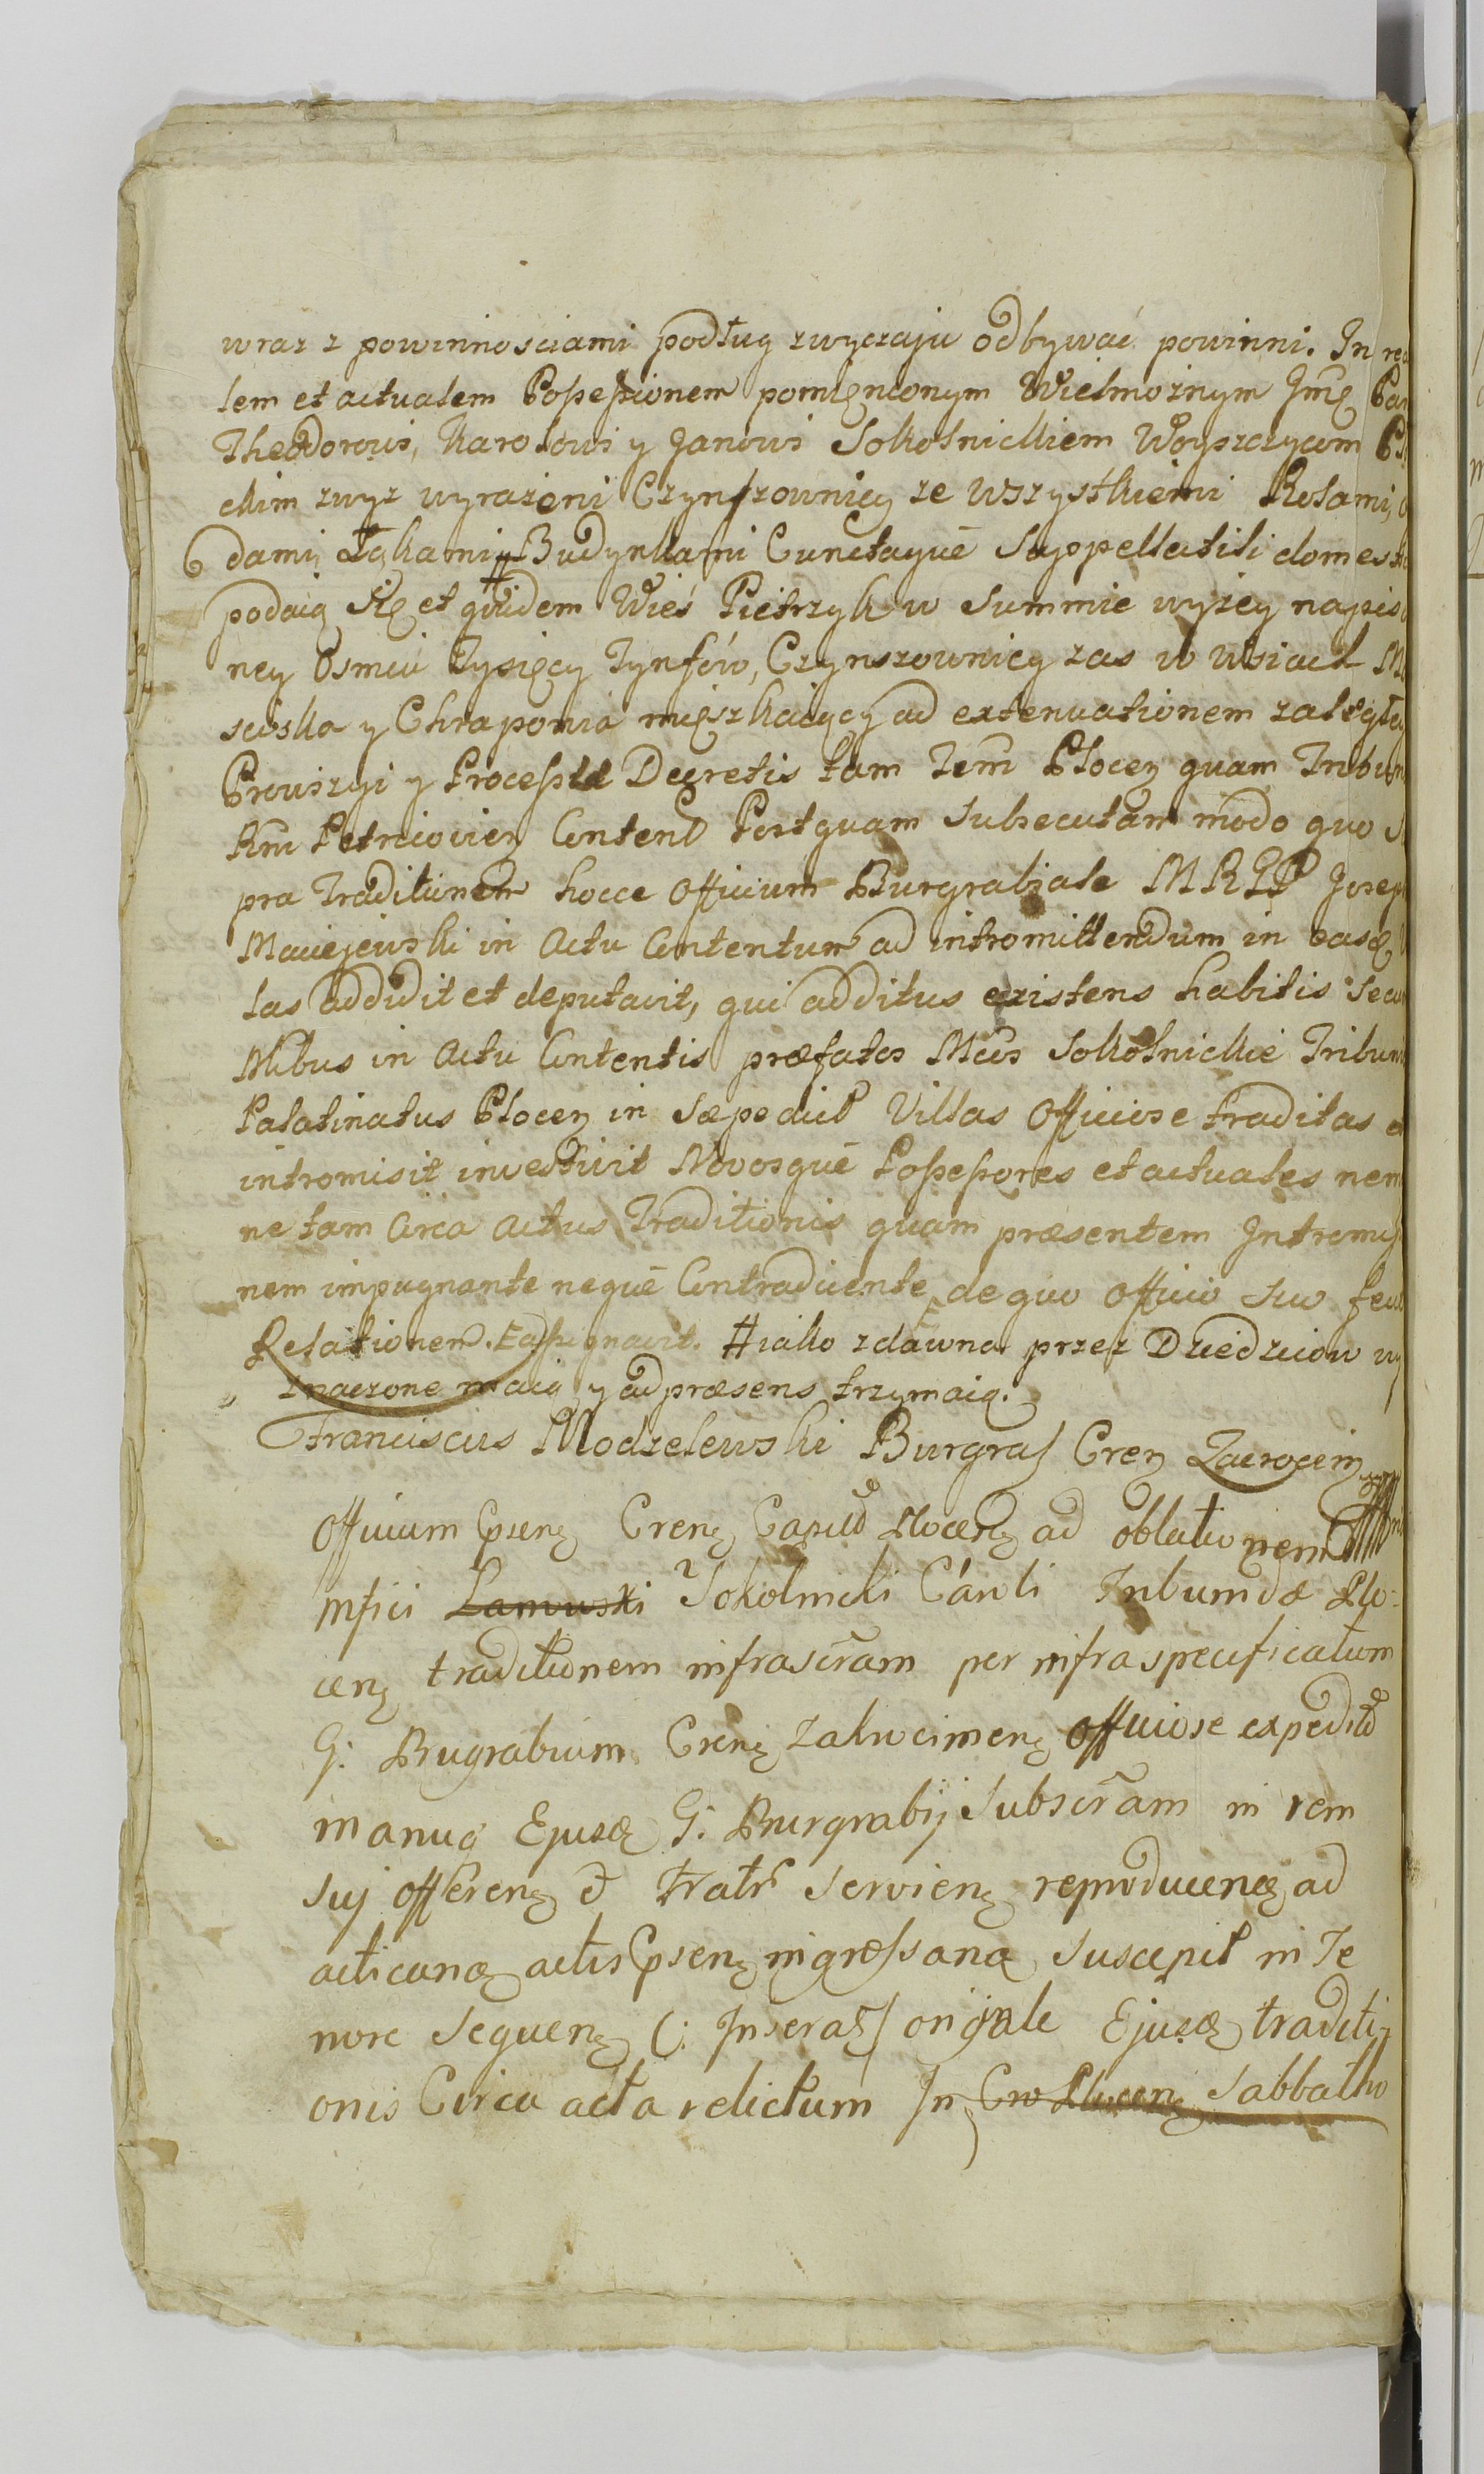 wraz z powinnosciami podług zwyczaju odbywać powinni. In rea
lem et actualem Possessionem pomięnionym Wielmożnym Jmę Pan
Theodorowi, Karolowi y Janowi Sokolnickiem Woyszczycom
ckim zwyz wyrażeni Czynszownicy ze wszystkiemi Rolami,
dami, Łąkami # Budynkami Cunctaque Suppellectili domes
podaią się et quidem Wieś Pietrzyk w Summie wyżey napisa
ney Osmiu Tysięcy Tynfów, Czynszownicy zas w wsiach
sciska y Chraponia mięszkaiący ad extenuationem zaległey
Prowizyi y Processu Decretis tam Trni Plocen quam Tribun
Rni Petricovien Content Postquam Subsecutam modo quo Su
pra Traditionem hocce Officium Burgrabiale MRGP Joseph
Maciejewski in Actu Contentum ad intromittendum in easdem
las addidit et deputavit, qui additus existens habitis secum
Nlibus in Actu Contentis præfatos Mcos Sokolnickie Tribuni
Palatinatus Plocen in Sæpedict Villas Officiose traditas
intromisit investivit Novosque Possessores et actuales nemi
ne tam circa actus Traditionis quam præsentem Intromissio
nem impugnante neque Contradicente, de quo Officio suo fecit
Relationem. Eassignavit. # iako zdawna przez Dziedzicow wy
znaczone maią y ad præsens trzymaią.
Franciscus Modzelewski Burgraf Cren Zacrocein
Officium Cpsens Crens Capitlt Plocens ad oblationem
Mfici Lamuski Sokolnicki Caroli Tribunidæ Plo-
cens traditionem infrascram per infraspecificatum
G: Brugrabium Crens Zakrocimens officiose expedit
manuq Ejusd G: Burgrabij Subscram in rem
suj offerens et Fratr Serviens reproducend ad
acticand actis Cpsens ingrossand suscepit in Te
nore sequens (: Inserat :) originale Ejusd traditi-
onis Circa acta relictum In Cro Plocens Sabbatho